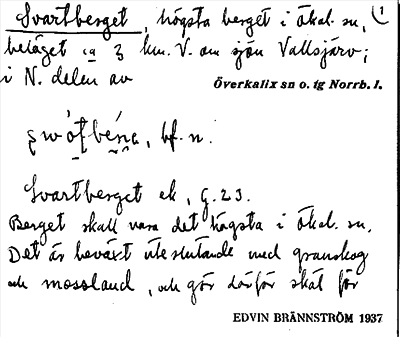 Svartberget, högsta berget i ökal. sn, 1
beläget ca 3 km. V. om sjön Vallsjärv;
i N. delen av Överkalix sn o. tg Norrb. l.
bf. n.
Svartberget ek, G. 23.
Berget skall vara det högsta i ökal. sn.
Det är beväxt uteslutande med granskog
och mossland, och gör därför skäl för
EDVIN BRÄNNSTRÖM 1937